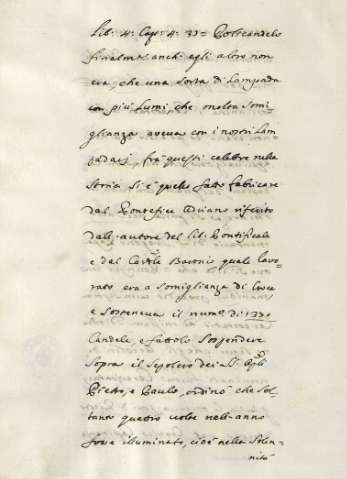 Lib: 4: Cap: 4: 33= Policandelo
finalm: anch: egli a loro non
era, che una sorta di Lampada
con più Lumi, che molta somi=
glianza aveva con i nostri Lam
padarj, frà questi celebre nella
storia si è quello fatto fabricare
dal Pontefice Adriano riferito
dall: autore del lib: Pontificale
e dal Card:le Baronio quale lavo=
rato era a somiglianza di Croce
e sosteneva il num: di 1330
Candele, e fattolo sospendere
sopra il sepolcro dei SS: Apli
Pietro, e Paulo, ordinò che sol=
tanto quattro volte nell: anno
fosse illuminato, cioè nella solen=
nità